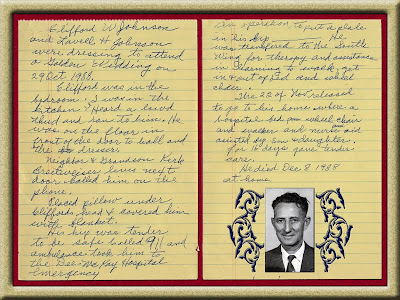 Clifford W Johnson
and Lavell H Johnson
were dressing to attend
a Golden Wedding on
29 Oct 1988.
Clifford was in the
bedroom. I was in the
kitchen. Heard a loud
thud and ran to him. He
was on the floor in
front of the door to hall and
the dresser.
Neighbor & Grandson Kirk
lives next
door called him on the
phone.
Placed pillow under
Cliffords head & covered him
with blanket.
His hip was tender
to be safe called 911 and
ambulance took him to
the Dee-McKay Hospital
Emergency
an operation to put a plate
in his hip. He
was transfered to the
Wing for therapy and assistance
in learning to walk, get
in & out of bed and wheel
chair.
The 22 of Nov released
to go to his home where a
hospital bed, wheel chair
and walker and nurse's aid
assisted by son & daughter.
for 16 days gave tender
care.
He died Dec 8 1988
at home.